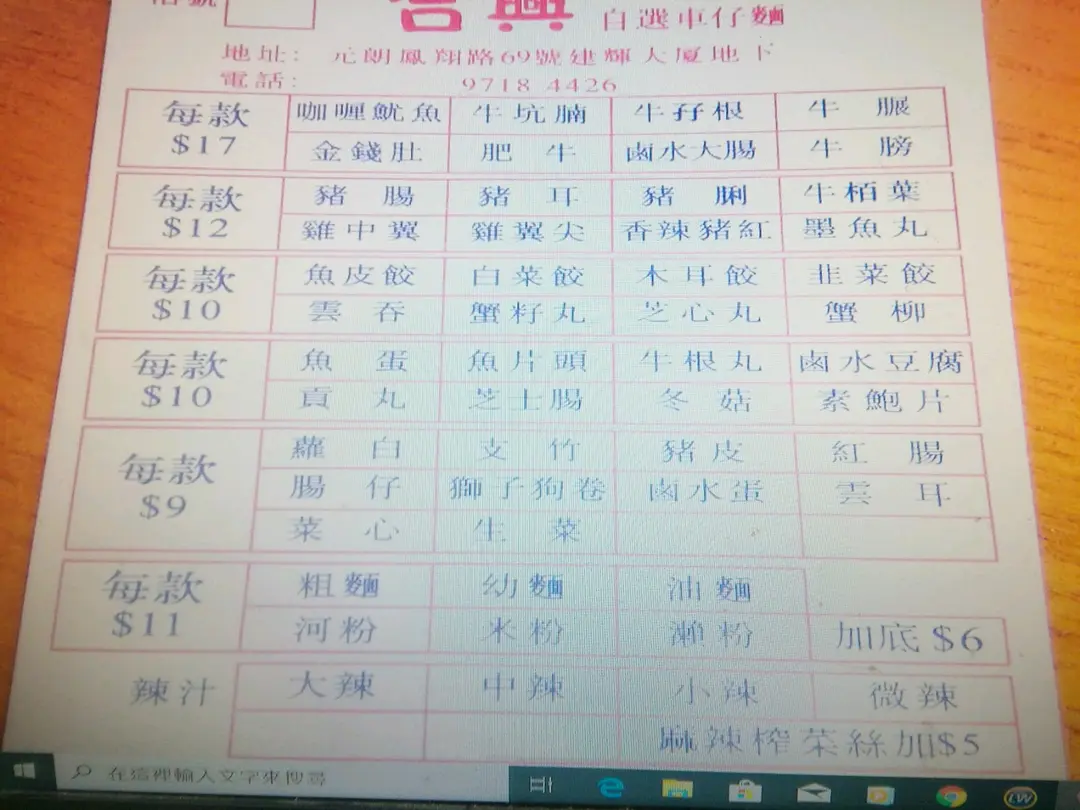 合興 自選車仔麵
地址: 元朗鳳翔路69號建輝大厦地下
電話: 9718 4426
每款 $17
咖喱魷魚 牛坑腩 牛孖根 牛𦟌
金錢肚 肥牛 鹵水大腸 牛膀
每款 $12
豬腸 豬耳 豬脷 牛栢葉
雞中翼 雞翼尖 香辣豬紅 墨魚丸
每款 $10
魚皮餃 白菜餃 木耳餃 韭菜餃
雲吞 蟹籽丸 芝心丸 蟹柳
每款 $10
魚蛋 魚片頭 牛根丸 鹵水豆腐
貢丸 芝士腸 冬菇 素鮑片
每款 $9
蘿白 支竹 豬皮 紅腸
腸仔 獅子狗卷 鹵水蛋 雲耳
菜心 生菜
每款 $11
粗麵 幼麵 油麵
河粉 米粉 瀨粉 加底 $6
辣汁
大辣 中辣 小辣 微辣
麻辣榨菜絲加$5
在這裡輸入文字來搜尋